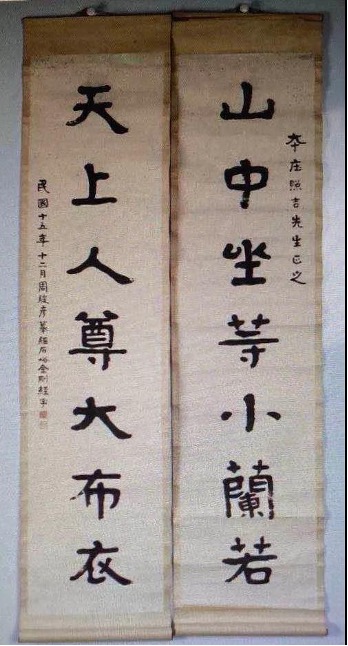 夲庄照吉先生正之
山中坐等小蘭若
天上人尊大布衣
民國十五年十二月周峻彦摹經石峪金剛經字